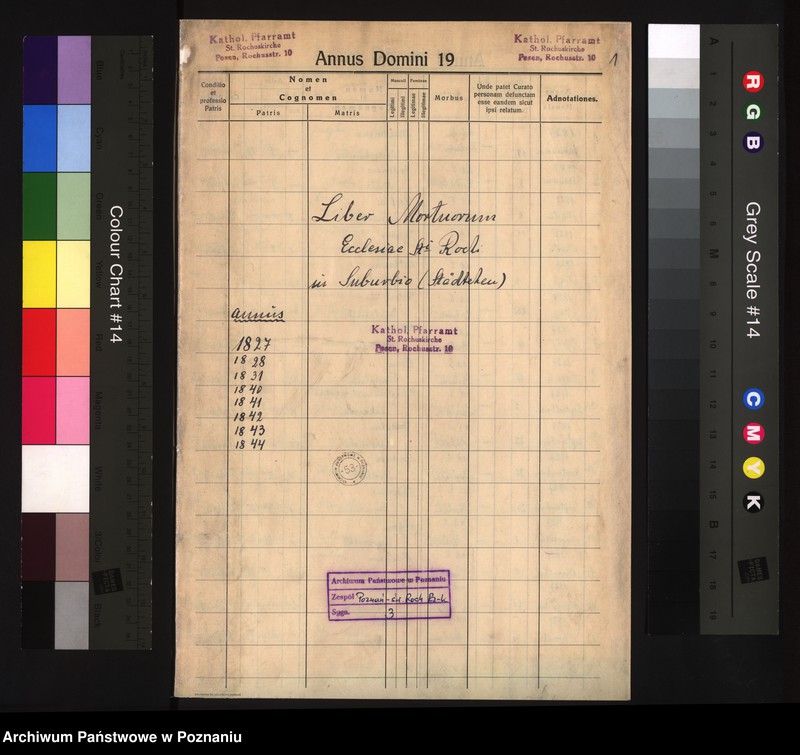 Kathol. Pfarramt
St. Rochuskirche
Posen, Rochusstr. 10
Annus Domini 19
Kathol. Pfarramt
St. Rochuskirche
Posen, Rochusstr. 10
1
Conditio
et
professio
Patris
Nomen
et
Cognomen
Patris
Matris
Masculi
Feminae
Legitimi
Illegitimi
Legitimae
Illegitimae
Morbus
Unde patet Curato
personam defunctam
esse eandem sicut
ipsi relatum.
Adnotationes.
Liber Mortuorum
Ecclesiae Sti Rochi
in Suburbio (Städtchen)
annus
1827
1828
1831
1840
1841
1842
1843
1844
Kathol. Pfarramt
St. Rochuskirche
Posen, Rochusstr. 10
53
Archiwum Państwowe w Poznaniu
Zespół Poznań-św. Roch Rz-k
Sygn. 3
Colour Chart #14
Blue
Cyan
Green
Yellow
Red
Magenta
White
3/Color
Black
Grey Scale #14
R
G
B
C
M
Y
K
A
1
2
3
4
5
6
M
8
9
10
11
12
13
14
15
B
17
18
19
Archiwum Państwowe w Poznaniu